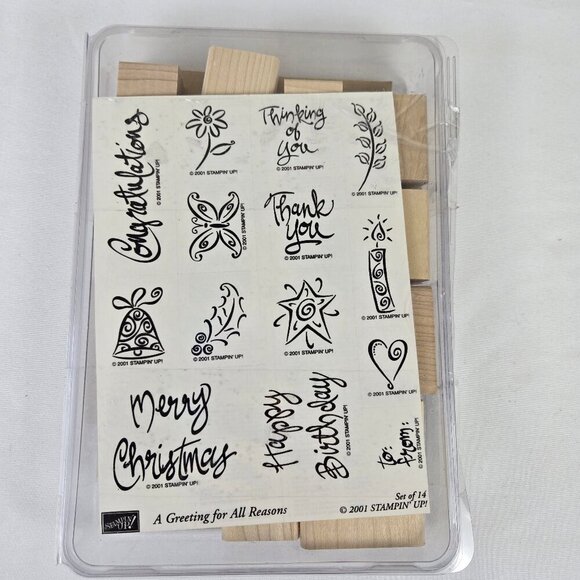 Congratulations
© 2001 STAMPIN' UP!
© 2001 STAMPIN' UP!
Thinking
of
you
© 2001 STAMPIN' UP!
© 2001 STAMPIN' UP!
© 2001 STAMPIN' UP!
Thank
you
© 2001 STAMPIN' UP!
© 2001 STAMPIN' UP!
© 2001 STAMPIN' UP!
© 2001 STAMPIN' UP!
© 2001 STAMPIN' UP!
© 2001 STAMPIN' UP!
Merry
Christmas
© 2001 STAMPIN' UP!
Happy
Birthday
© 2001 STAMPIN' UP!
to:
from:
© 2001 STAMPIN' UP!
STAMPIN' UP!
A Greeting for All Reasons
Set of 14
© 2001 STAMPIN' UP!